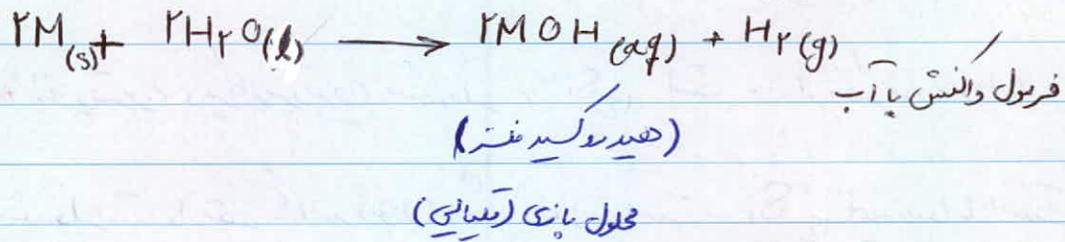 ۲M(s) + ۲H۲O(l) ⟶ ۲MOH(aq) + H۲(g)
فرمول واکنش با آب
(هیدروکسید فلز)
محلول بازی (قلیایی)